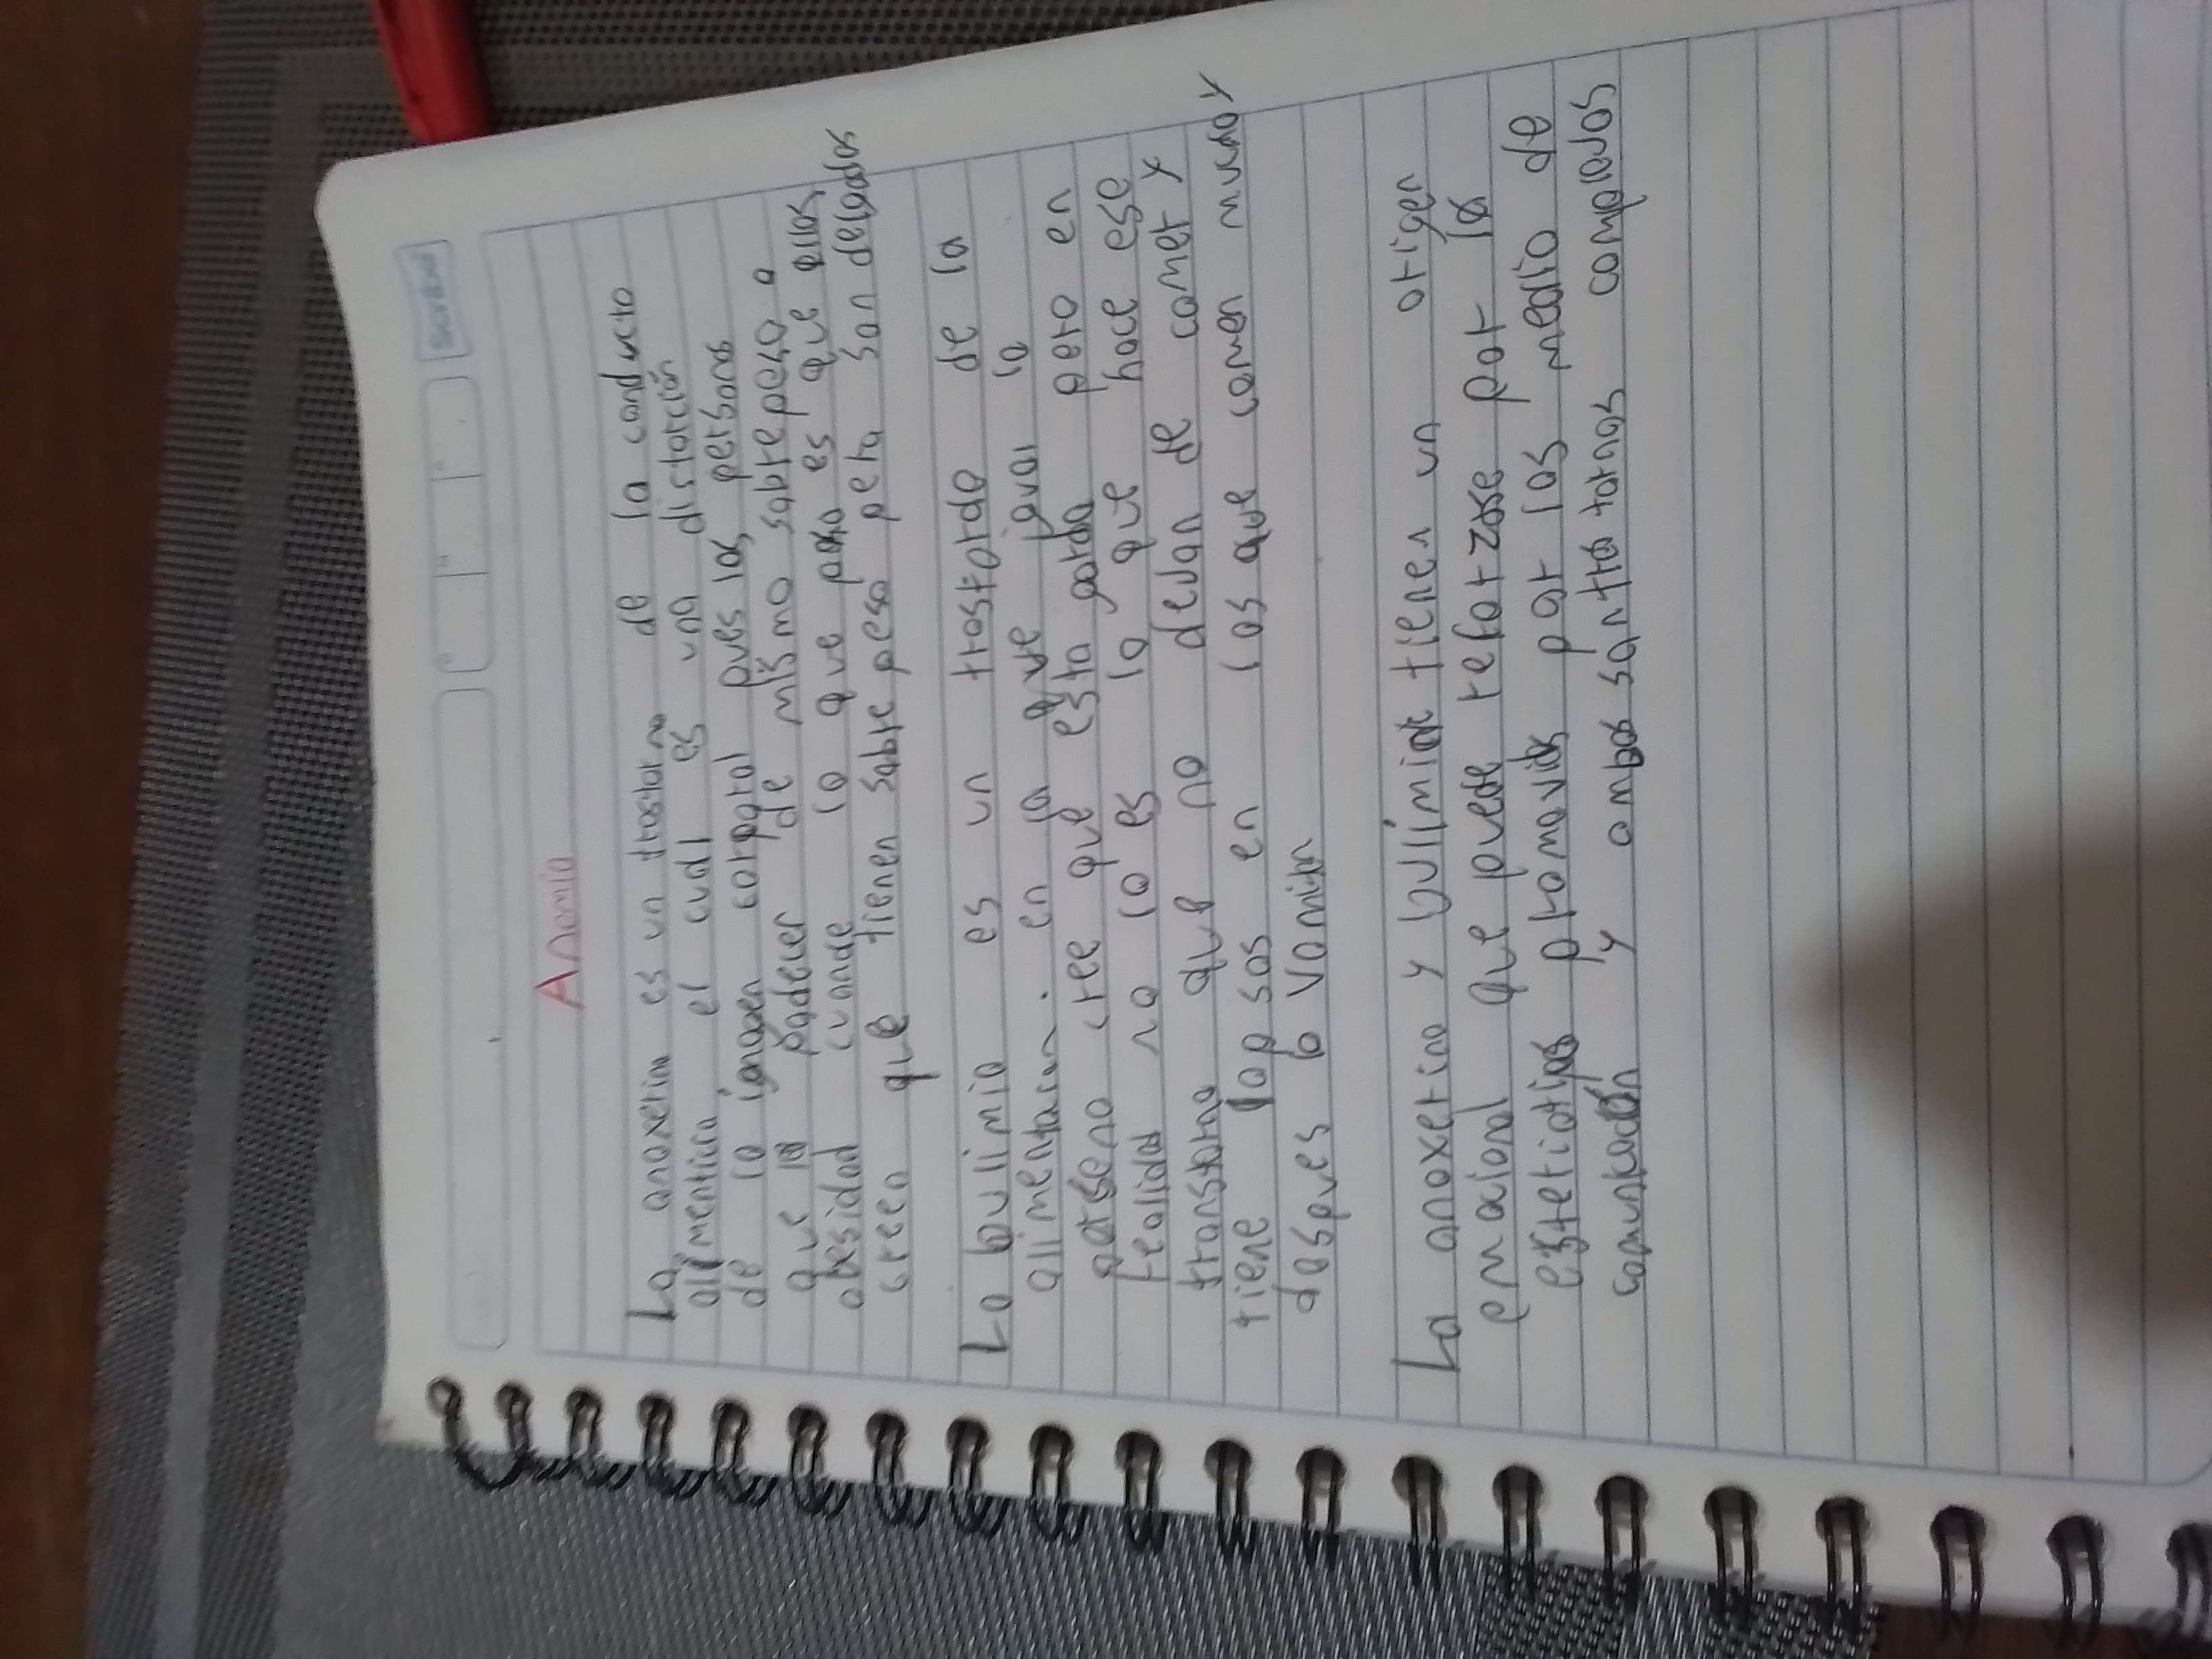 Scribe
Anomia
La anoxeria es un trastorno de la conducto
alimenticia el cual es una distorción
de la imagen corporal pues las personas
que la padecer de mismo sobrepeso o
obesidad cuando lo que pasa es que ellos
creen que tienen sobre peso pero son delgados
La bulimia es un trastordo de la
alimentacion. en la que igual la
persona cree que esta gorda pero en
realidad no lo es lo que hace ese
transtorno que no dejan de comer y
tiene lapsos en los que comen mucho y
despues lo vomitan
La anoxeria y bulimia tienen un origen
emocional que puede reforzase por lo
estetiotipos promovids por los medio de
comunicación y ambas son trastornos complejos